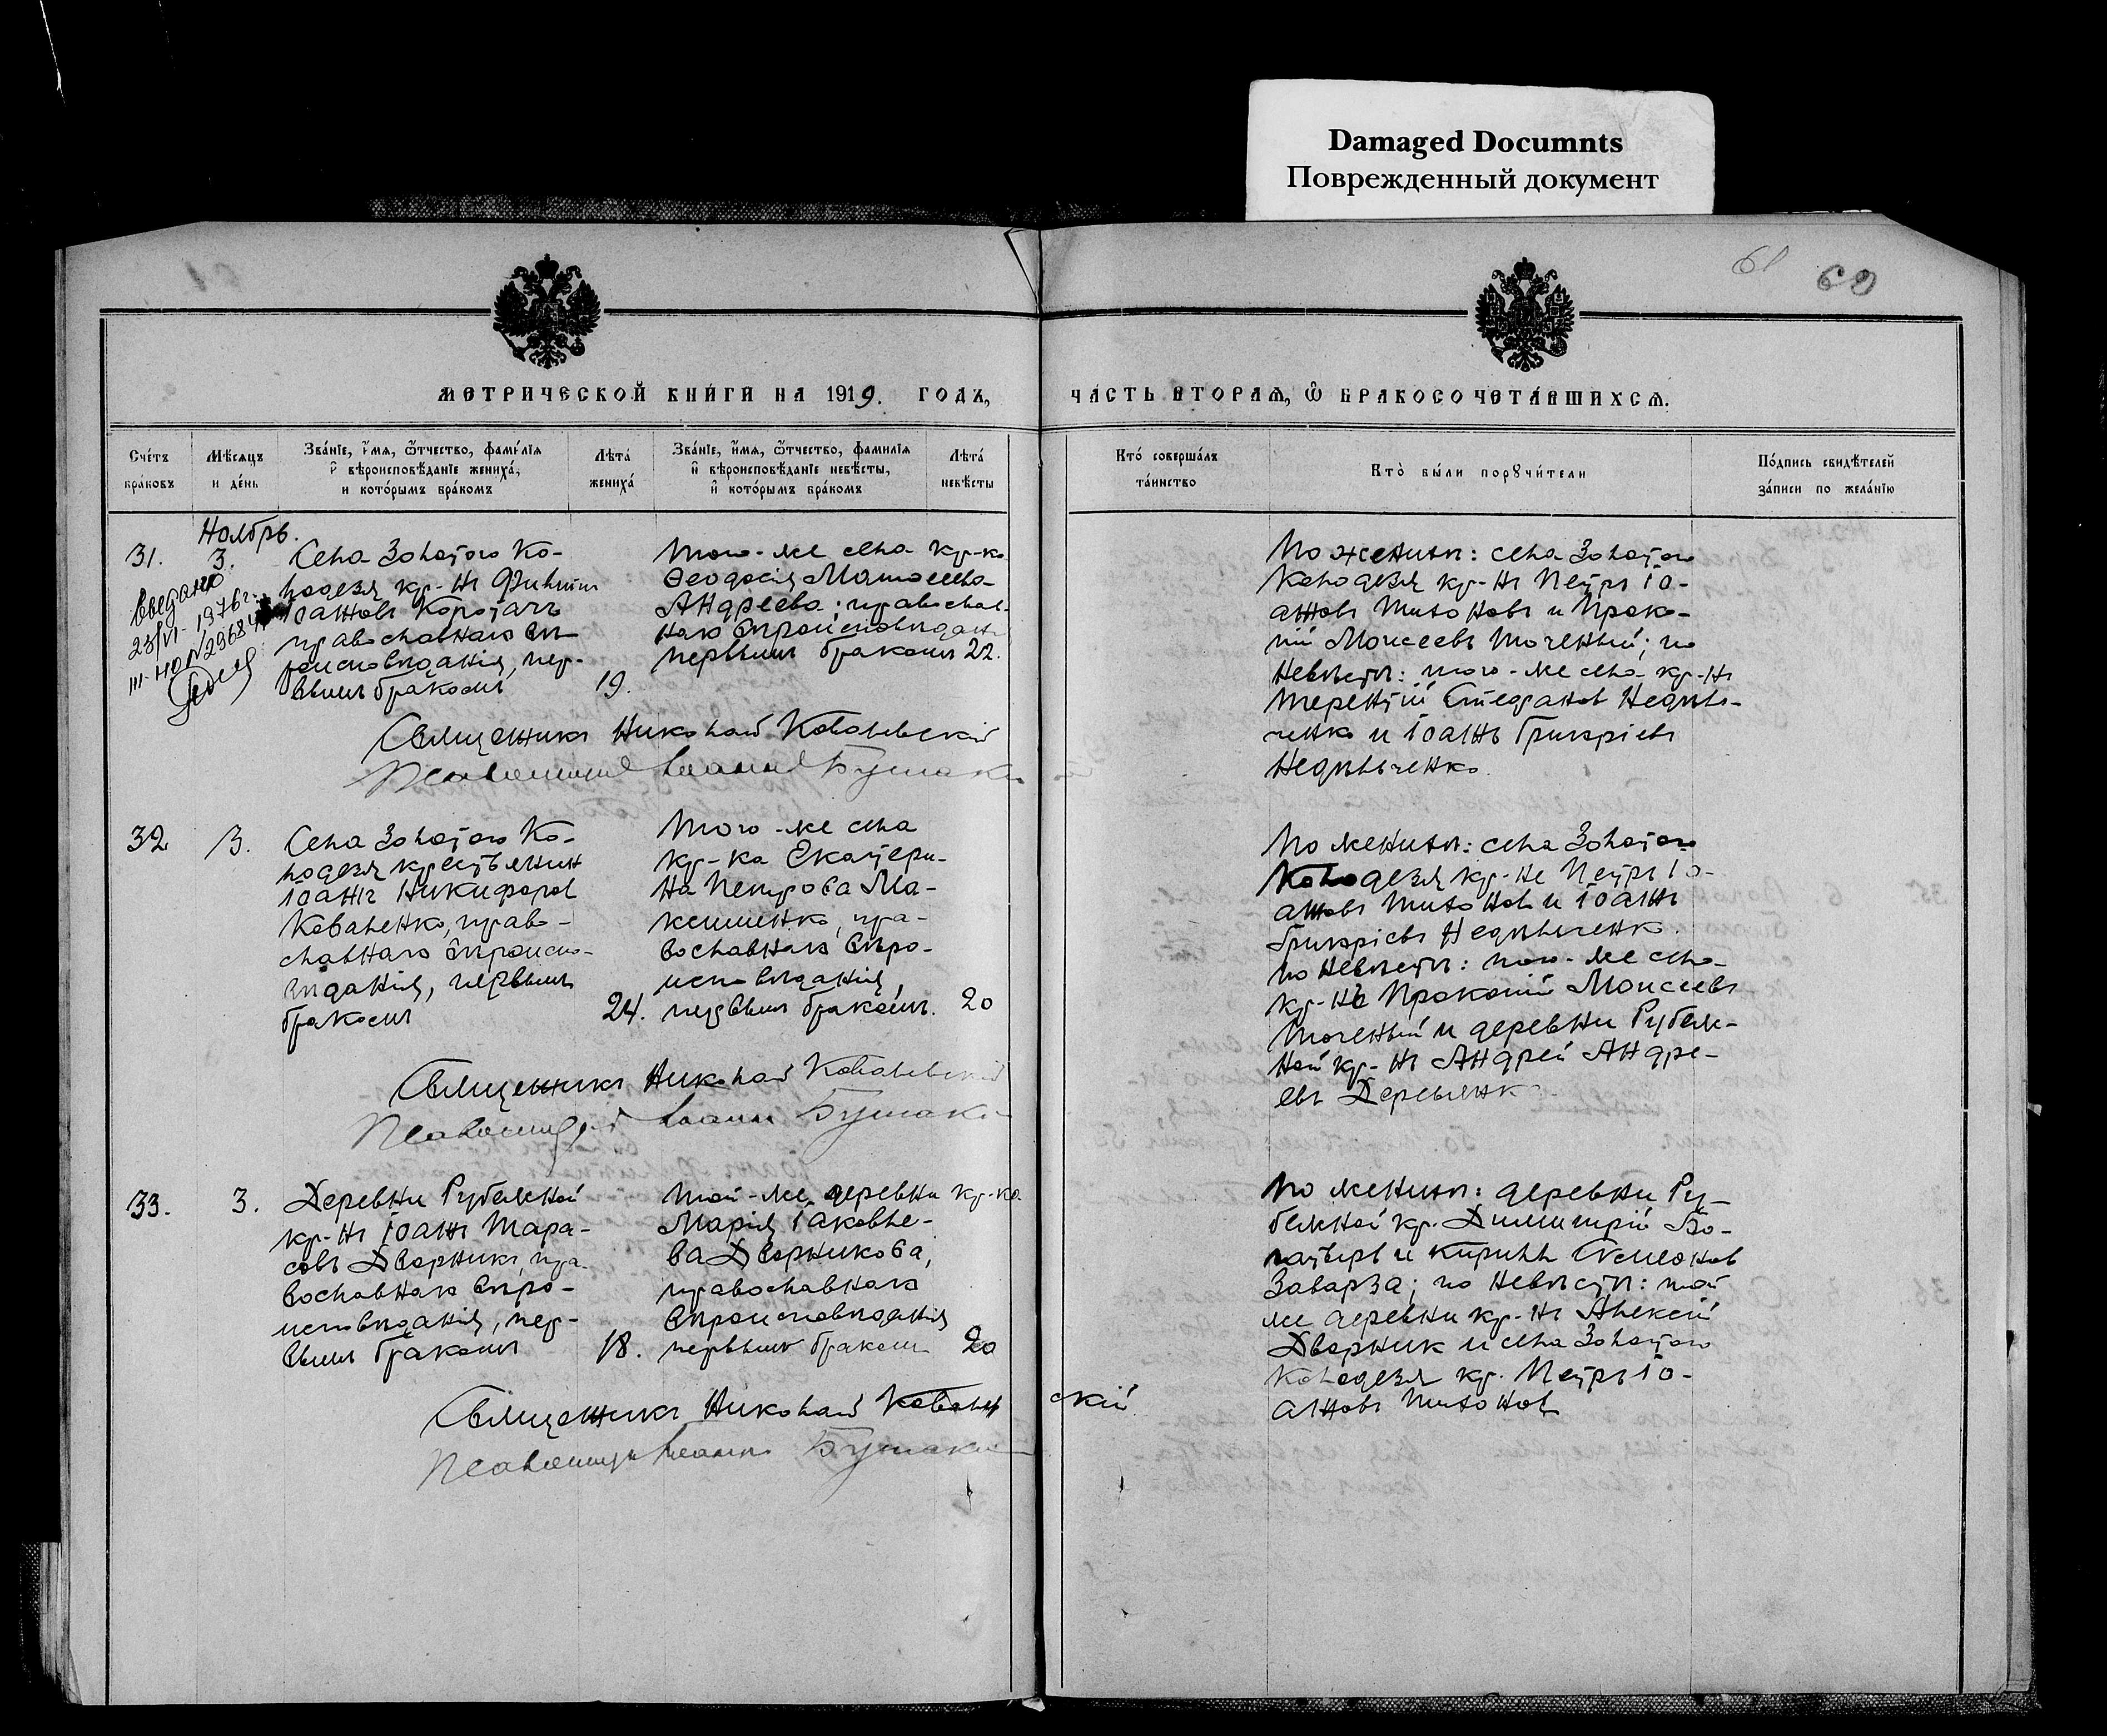 Damaged Documnts
Поврежденный документ
61 60
МЕТРИЧЕСКОЙ КНИГИ НА 1919. ГОДЪ,
ЧАСТЬ ВТОРАЯ, Ѡ БРАКОСОЧЕТАВШИХСЯ.
Счетъ браковъ
Мѣсяцъ и день
Званіе, имя, отчество, фамилія и вѣроисповѣданіе жениха, и которымъ бракомъ
Лѣта жениха
Званіе, имя, отчество, фамилія и вѣроисповѣданіе невѣсты, и которымъ бракомъ
Лѣта невѣсты
Кто совершалъ таинство
Кто были поручители
Подпись свидѣтелей записи по желанію
Ноябрь.
31.
3.
Выдано
23/VI-1976 г.
III-НО №
Села Золотого Ко-
лодезя кр-нъ Филиппъ
Іоанновъ Коротачъ
православнаго вѣ-
роисповѣданія, пер-
вымъ бракомъ
19.
Того-же села кр-ка
Ѳеодосія
Андреева; православ-
наго вѣроисповѣдан
первымъ бракомъ 22.
Священникъ Николай Ковалевскій
Псаломщикъ Іоаннъ
По женихѣ: села Золотого
Колодезя кр-нъ Петръ Іо-
анновъ Тихоновъ и Проко-
пій Моисеевъ Точеный; по
невѣстѣ: того-же села кр-нъ
Терентій Стефановъ Недѣль-
ченко и Іоаннъ Григоріевъ
Недѣльченко.
32
3.
Села Золотого Ко-
лодезя крестьянин
Іоаннъ Никифоров
Коваленко, право-
славнаго вѣроиспо-
вѣданія, первымъ
бракомъ
24.
Того-же села
кр-ка Екатери-
на Петрова Ма-
ксименко, пра-
вославнаго вѣро-
исповѣданія,
первымъ бракомъ. 20
Священникъ Николай Ковалевскій
Псаломщикъ Іоаннъ
По женихѣ: села Золотого
Колодезя кр-не Петръ Іо-
анновъ Тихонов и Іоаннъ
Григоріевъ Недѣльченко.
по невѣстѣ: того-же села
кр-нъ Прокопій Моисеевъ
Точеный и деревни Рубеж-
ной кр-нъ Андрей Андре-
евъ Деревянк
33.
3.
Деревни Рубежной
кр-нъ Іоаннъ Тара-
совъ Дворникъ, пра-
вославнаго вѣро-
исповѣданія, пер-
вымъ бракомъ
18.
Той-же деревни кр-ка
Марія Іаковле-
ва Дворникова,
православнаго
вѣроисповѣданія
первымъ бракомъ 20
Священникъ Николай Ковалевскій
Псаломщикъ Іоаннъ
По женихѣ: деревни Ру-
бежной кр. Димитрій Бо-
гатырь и Кириллъ Семенов
Заварза; по невѣстѣ: той
же деревни кр-нъ Алексей
Дворник и села Золотого
Колодезя кр. Петръ Іо-
анновъ Тихонов